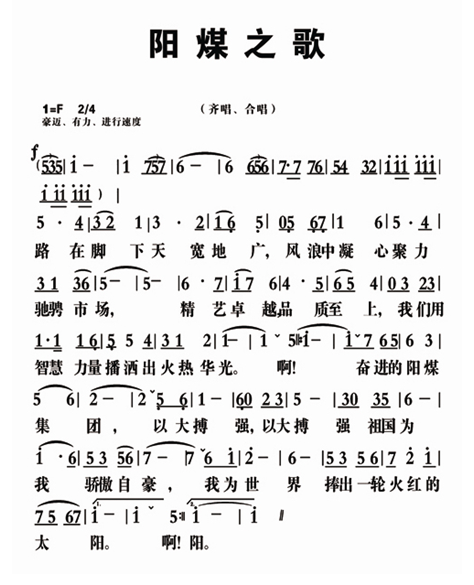 阳煤之歌
1=F 2/4
（齐唱、合唱）
豪迈、有力、进行速度
f
(535 | i - | i 757 | 6 - | 6 656 | 7·7 76 | 54 32 | iii iii | iii iii |
i iii iii ) |
5 · 4 | 3 2 | 1 3 · | 2 · | 1 6 | 5 | 05 67 | 1 · 6 1 2 | 5 · 4 |
路 在 脚 下 天 宽 地 广， 风 浪 中 凝 心 聚 力
3 1 3 | 5 - | 5 - | 6 · 7 | i 7 6 | 4 · 3 0 8 | 6 5 4 | 0 3 2 3 |
驰骋 市 场， 精 艺 卓 越 品 质 至 上， 我 们 用
1·1 1 6 | 5 5 4 | 3 1 2 | 1 - | 1 - | 5 | i - | i 7 | 6 5 6 3 |
智慧 力量播洒出火热 华光。 啊！ 奋进的阳煤
5 6 | 2 - | 2 5 6 | 1 - | 60 2 3 | 5 - | 30 35 | 6 · i |
集 团， 以 大 搏 强，以大搏 强 祖国为
i · 6 | 53 56 | 7 - | 7 6 7 | 2 · i | 5 3 | 56 i | 7 2 i |
我 骄傲自豪， 我 为 世 界 捧出一轮火红的
75 67 | i - | i 5 | i - | i 0 ‖
太 阳。 啊！阳。